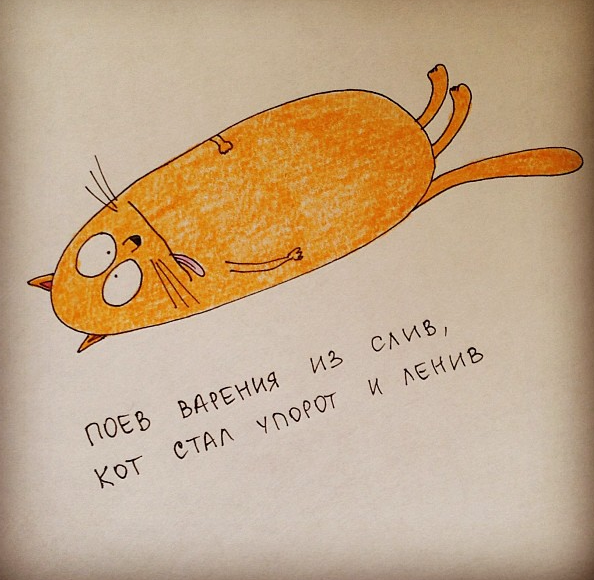 ПОЕВ ВАРЕНИЯ ИЗ СЛИВ,
КОТ СТАЛ УПОРОТ И ЛЕНИВ